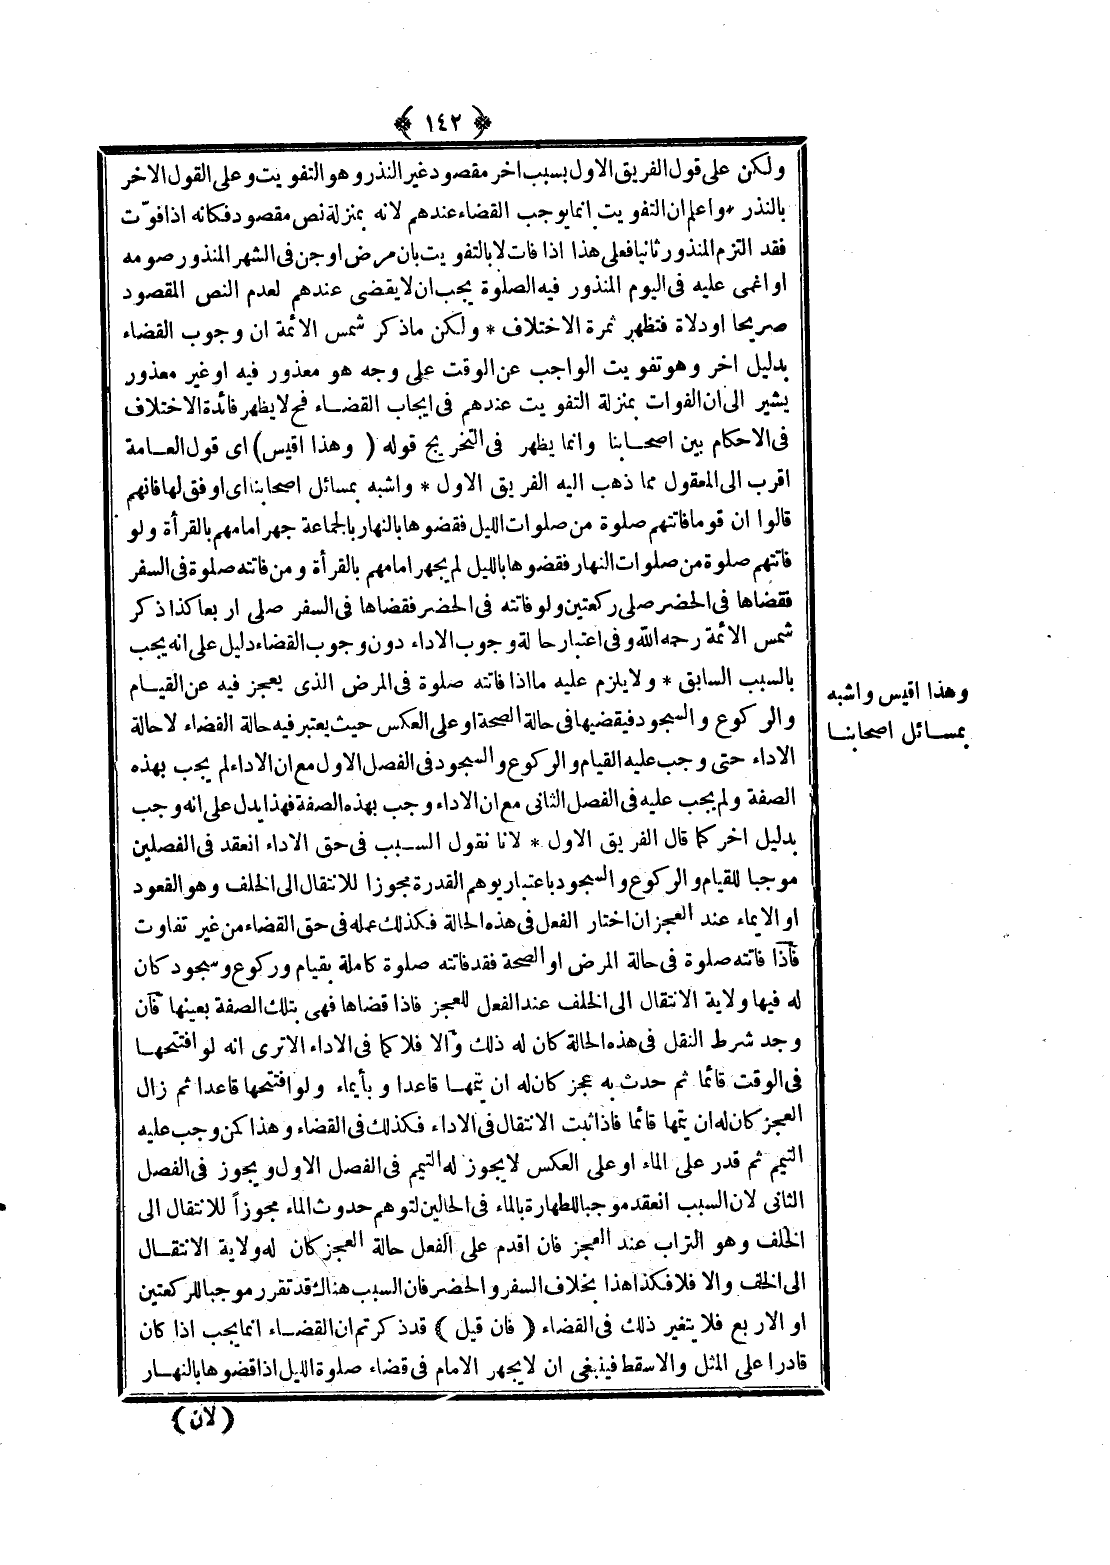 ﴿ ١٤٢ ﴾
ولكن على قول الفريق الاول بسبب اخر مقصود غير النذر وهو التفويت وعلى القول الاخر
بالنذر * واعلم ان التفويت انما يوجب القضاء عندهم لانه بمنزلة نص مقصود فكانه اذا فوّت
فقد التزم المنذور ثانيا فعلى هذا اذا فات لا بالتفويت بان مرض او جن فى الشهر المنذور صومه
او اغمى عليه فى اليوم المنذور فيه الصلوة يجب ان لا يقضى عندهم لعدم النص المقصود
صريحا او دلالة فتظهر ثمرة الاختلاف * ولكن ما ذكر شمس الائمة ان وجوب القضاء
بدليل اخر وهو تفويت الواجب عن الوقت على وجه هو معذور فيه او غير معذور
يشير الى ان الفوات بمنزلة التفويت عندهم فى ايجاب القضاء فح لا يظهر فائدة الاختلاف
فى الاحكام بين اصحابنا وانما يظهر فى التخريج قوله ( وهذا اقيس ) اى قول العامة
اقرب الى المعقول مما ذهب اليه الفريق الاول * واشبه بمسائل اصحابنا اى اوفق لها فانهم
قالوا ان قوما فاتتهم صلوة من صلوات الليل فقضوها بالنهار بالجماعة جهر امامهم بالقرأة ولو
فاتتهم صلوة من صلوات النهار فقضوها بالليل لم يجهر امامهم بالقرأة ومن فاتته صلوة فى السفر
فقضاها فى الحضر صلى ركعتين ولو فاتته فى الحضر فقضاها فى السفر صلى اربعا كذا ذكر
شمس الائمة رحمه الله وفى اعتبار حالة وجوب الاداء دون وجوب القضاء دليل على انه يجب
بالسبب السابق * ولا يلزم عليه ما اذا فاتته صلوة فى المرض الذى يعجز فيه عن القيام
والركوع والسجود فيقضيها فى حالة الصحة او على العكس حيث يعتبر فيه حالة القضاء لا حالة
الاداء حتى وجب عليه القيام والركوع والسجود فى الفصل الاول مع ان الاداء لم يجب بهذه
الصفة ولم يجب عليه فى الفصل الثانى مع ان الاداء وجب بهذه الصفة فهذا يدل على انه وجب
بدليل اخر كما قال الفريق الاول * لانا نقول السبب فى حق الاداء انعقد فى الفصلين
موجبا للقيام والركوع والسجود باعتبار يوهم القدرة مجوزا للانتقال الى الخلف وهو القعود
او الايماء عند العجز ان اختار الفعل فى هذه الحالة فكذلك عمله فى حق القضاء من غير تفاوت
فاذا فاتته صلوة فى حالة المرض او الصحة فقد فاتته صلوة كاملة بقيام وركوع وسجود كان
له فيها ولاية الانتقال الى الخلف عند الفعل للعجز فاذا قضاها فهى بتلك الصفة بعينها فان
وجد شرط النقل فى هذه الحالة كان له ذلك والا فلا كما فى الاداء الا ترى انه لو افتتحها
فى الوقت قائما ثم حدث به عجز كان له ان يتمها قاعدا وبأيماء ولو افتتحها قاعدا ثم زال
العجز كان له ان يتمها قائما فاذا ثبت الانتقال فى الاداء فكذلك فى القضاء وهذا كمن وجب عليه
التيمم ثم قدر على الماء او على العكس لا يجوز له التيمم فى الفصل الاول ويجوز فى الفصل
الثانى لان السبب انعقد موجبا للطهارة بالماء فى الحالين لتوهم حدوث الماء مجوزاً للانتقال الى
الخلف وهو التراب عند العجز فان اقدم على الفعل حالة العجز كان له ولاية الانتقال
الى الخلف والا فلا فكذا هذا بخلاف السفر والحضر فان السبب هناك قد تقرر موجبا للركعتين
او الاربع فلا يتغير ذلك فى القضاء ( فان قيل ) قد ذكرتم ان القضاء انما يجب اذا كان
قادرا على المثل والا سقط فينبغى ان لا يجهر الامام فى قضاء صلوة الليل اذا قضوها بالنهار
( لان )
وهذا اقيس واشبه
بمسائل اصحابنا